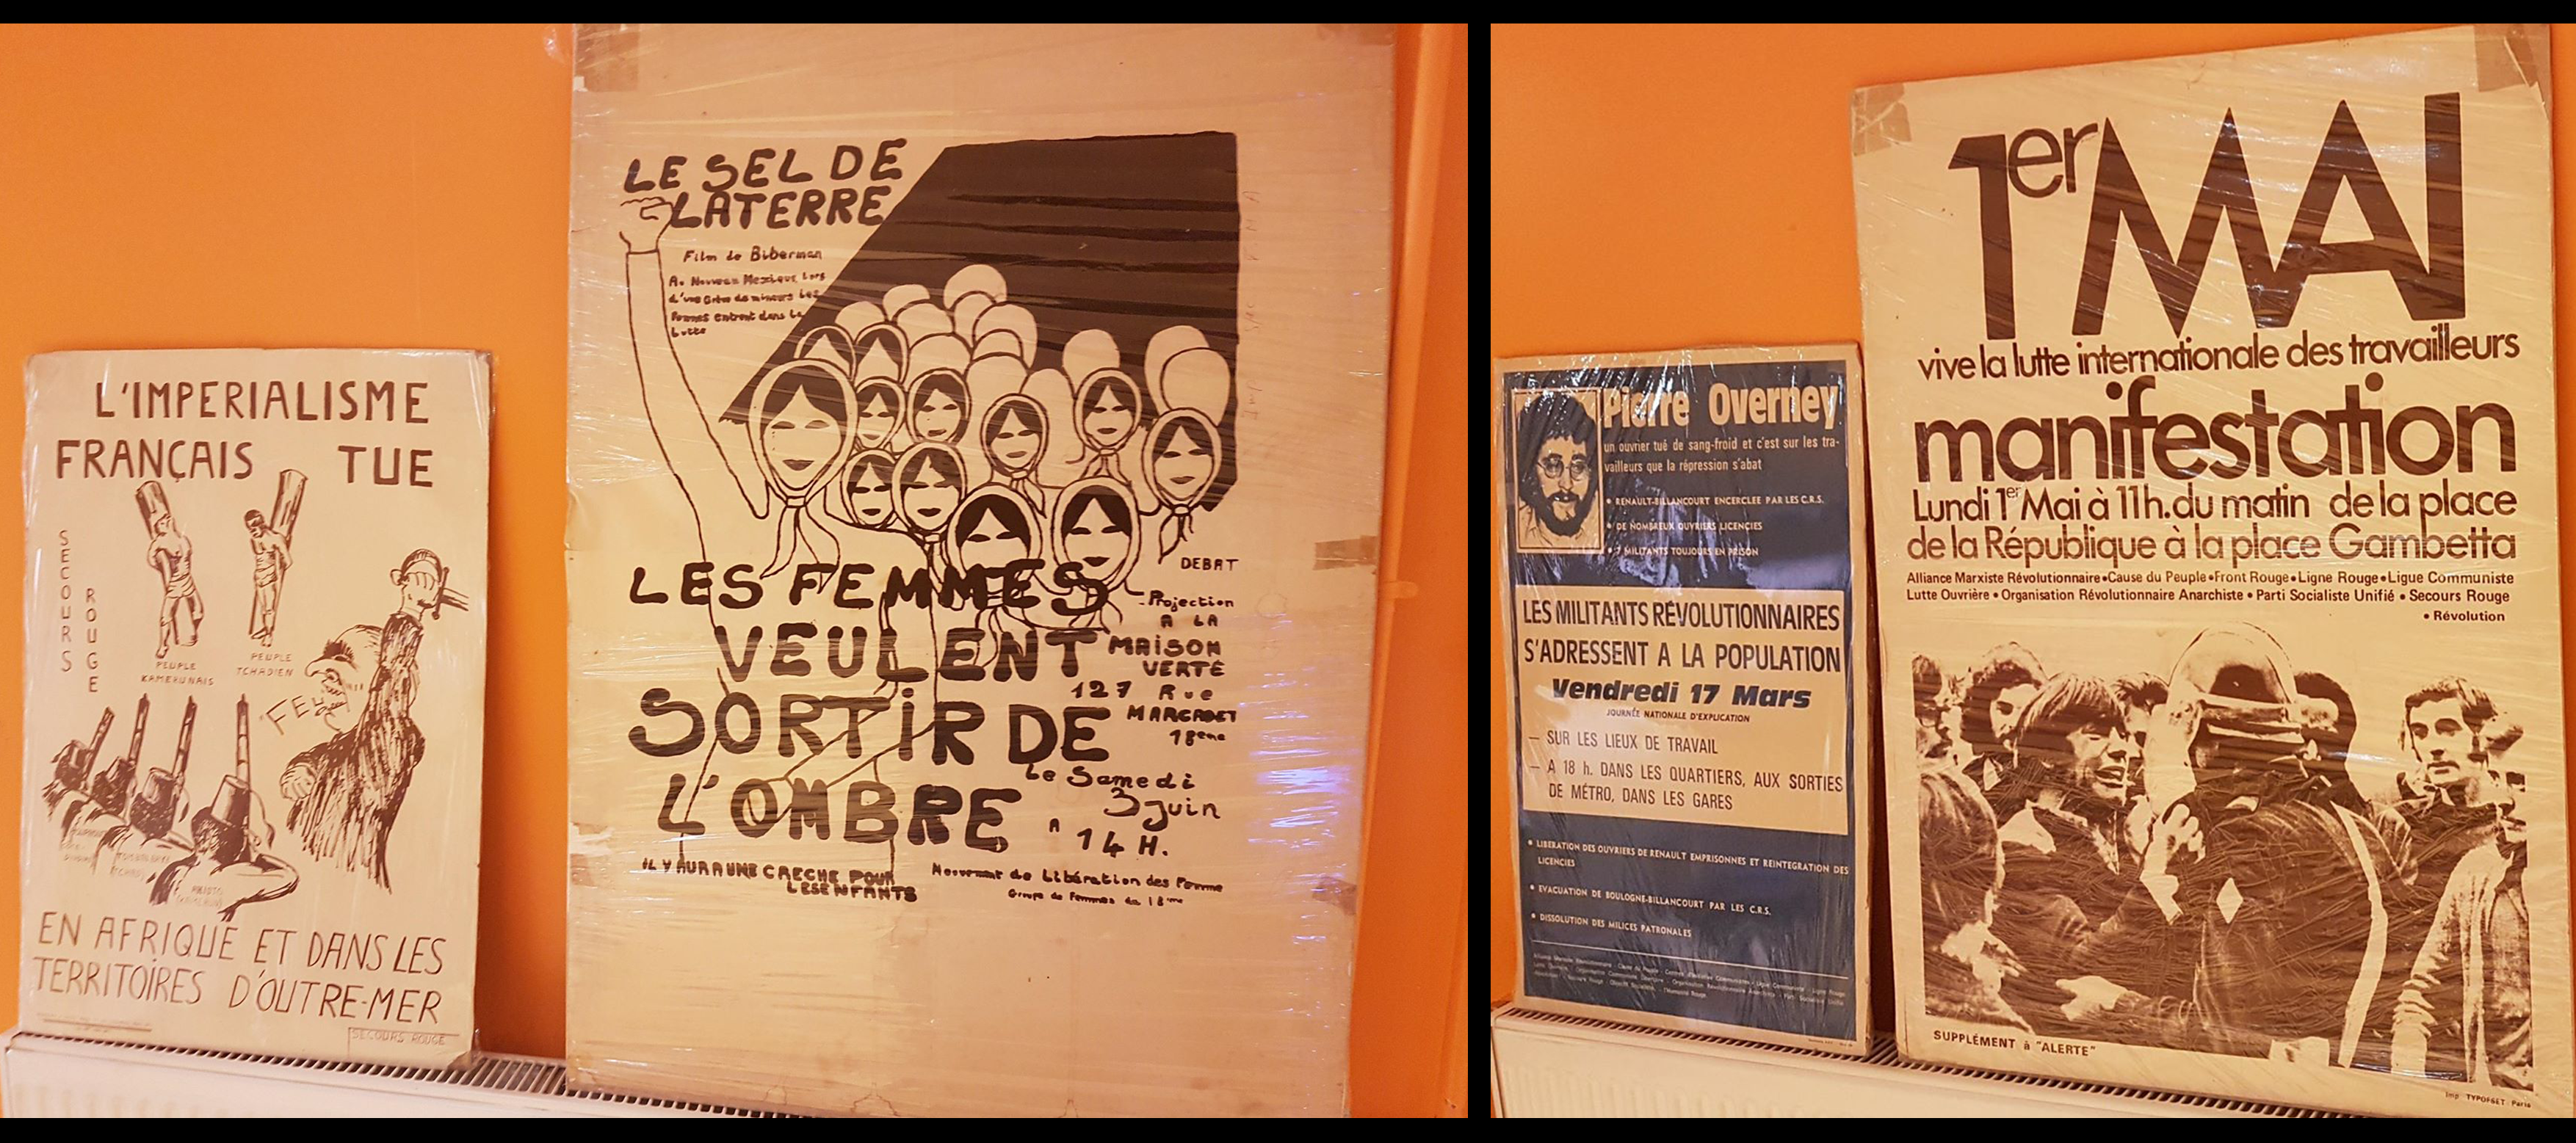 L'IMPERIALISME
FRANÇAIS TUE
SECOURS
ROUGE
PEUPLE
KAMERUNAIS
PEUPLE
TCHADIEN
"FEU
EN AFRIQUE ET DANS LES
TERRITOIRES D'OUTRE-MER
SECOURS ROUGE
LE SEL DE
LA TERRE
Film de Biberman
Au Nouveau Mexique Lors
d'une Grève de mineurs Les
Femmes entrent dans la
Lutte
DEBAT
LES FEMMES
VEULENT
SORTIR DE
L'OMBRE
Projection
A LA
MAISON
VERTE
127 Rue
MARCADET
18eme
Le Samedi
3 Juin
A 14 H.
IL Y AURA UNE CRECHE POUR
LES ENFANTS
Mouvement de Libération des Femme
Groupe de Femmes du 18eme
Pierre Overney
un ouvrier tué de sang-froid et c'est sur les tra-
vailleurs que la répression s'abat
• RENAULT-BILLANCOURT ENCERCLEE PAR LES C.R.S.
• DE NOMBREUX OUVRIERS LICENCIES
• 7 MILITANTS TOUJOURS EN PRISON
LES MILITANTS RÉVOLUTIONNAIRES
S'ADRESSENT A LA POPULATION
Vendredi 17 Mars
JOURNÉE NATIONALE D'EXPLICATION
— SUR LES LIEUX DE TRAVAIL
— A 18 h. DANS LES QUARTIERS, AUX SORTIES
DE MÉTRO, DANS LES GARES
• LIBERATION DES OUVRIERS DE RENAULT EMPRISONNES ET REINTEGRATION DES
LICENCIES
• EVACUATION DE BOULOGNE-BILLANCOURT PAR LES C.R.S.
• DISSOLUTION DES MILICES PATRONALES
1er MAI
vive la lutte internationale des travailleurs
manifestation
Lundi 1er Mai à 11h. du matin de la place
de la République à la place Gambetta
Alliance Marxiste Révolutionnaire • Cause du Peuple • Front Rouge • Ligne Rouge • Ligue Communiste
Lutte Ouvrière • Organisation Révolutionnaire Anarchiste • Parti Socialiste Unifié • Secours Rouge
• Révolution
SUPPLÉMENT à "ALERTE"
Imp. TYPOFSET Paris